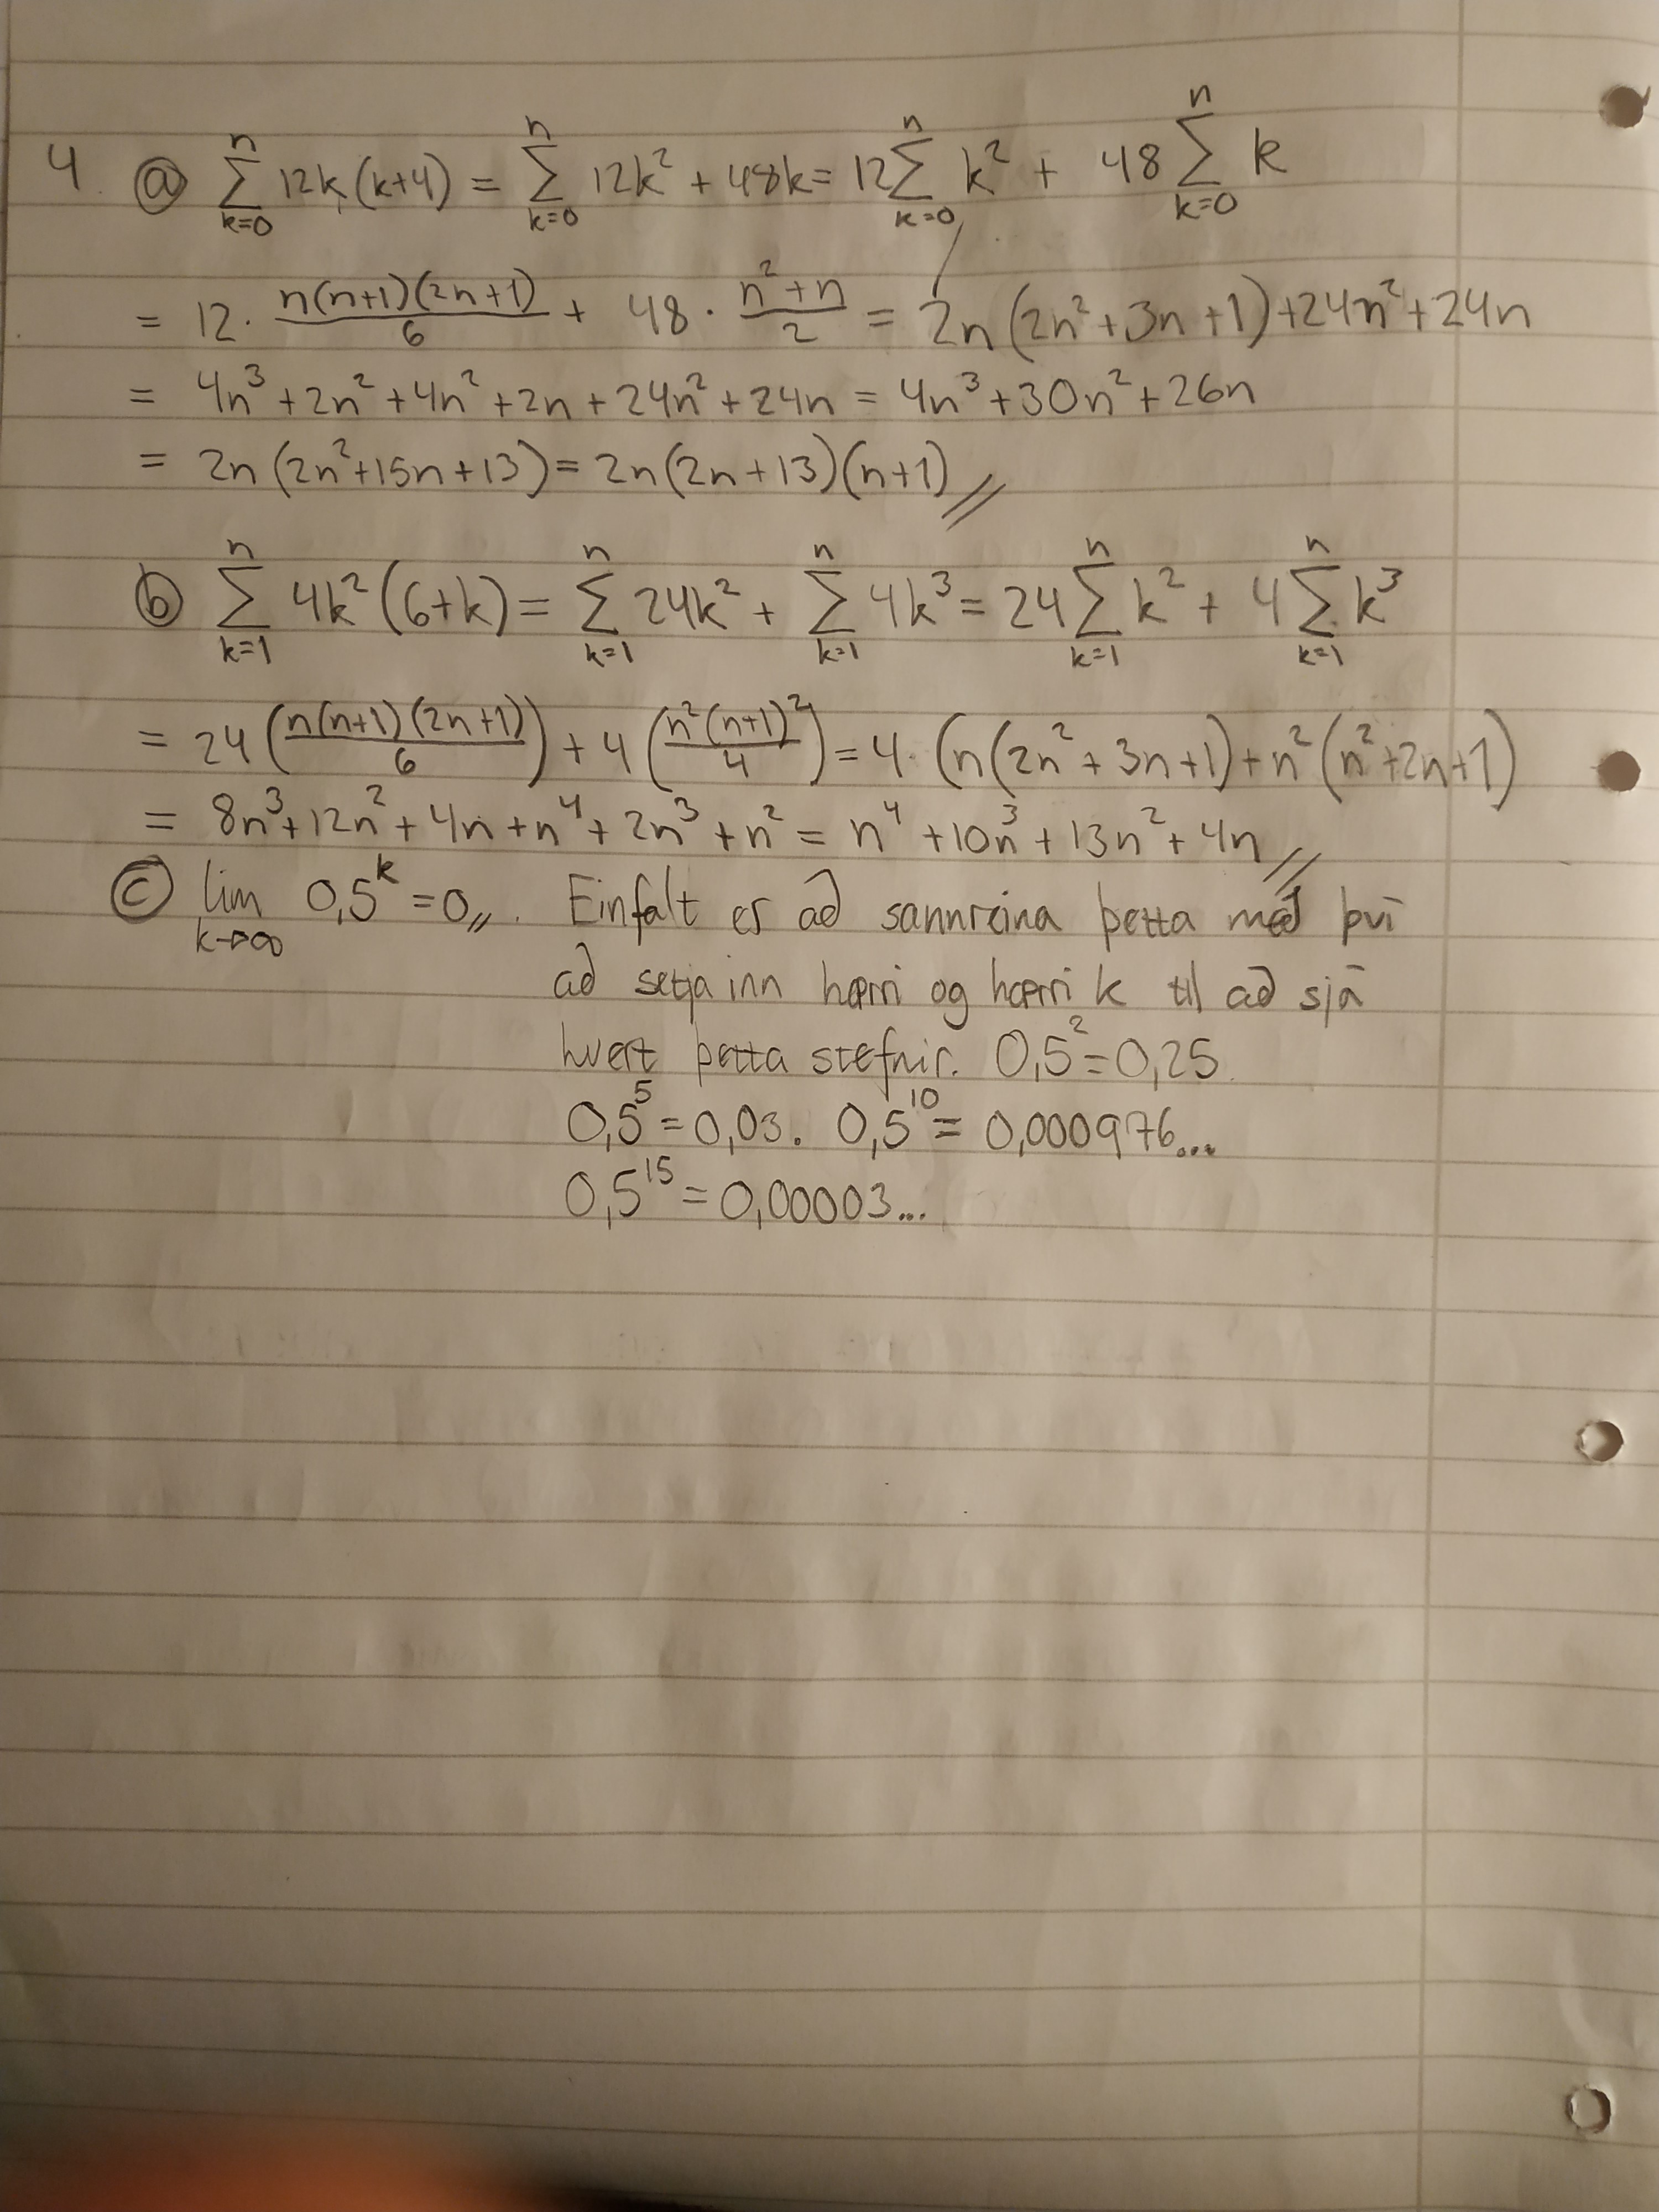 4. ⓐ ∑_{k=0}^{n} 12k(k+4) = ∑_{k=0}^{n} 12k² + 48k = 12∑_{k=0}^{n} k² + 48∑_{k=0}^{n} k
= 12 · n(n+1)(2n+1)/6 + 48 · (n²+n)/2 = 2n(2n²+3n+1)+24n²+24n
= 4n³+2n²+4n²+2n+24n²+24n = 4n³+30n²+26n
= 2n(2n²+15n+13) = 2n(2n+13)(n+1)//
ⓑ ∑_{k=1}^{n} 4k²(6+k) = ∑_{k=1}^{n} 24k² + ∑_{k=1}^{n} 4k³ = 24∑_{k=1}^{n} k² + 4∑_{k=1}^{n} k³
= 24(n(n+1)(2n+1)/6) + 4(n²(n+1)²/4) = 4·(n(2n²+3n+1)+n²(n²+2n+1)
= 8n³+12n²+4n+n⁴+2n³+n² = n⁴+10n³+13n²+4n//
ⓒ lim_{k→∞} 0,5^k = 0,,. Einfalt er að sannreina þetta með því
að setja inn hærri og hærri k til að sjá
hvert þetta stefnir. 0,5² = 0,25.
0,5⁵ = 0,03. 0,5¹⁰ = 0,000976...
0,5¹⁵ = 0,00003...